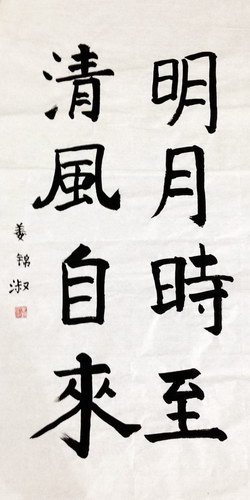 明月時至
清風自來
姜錦淑